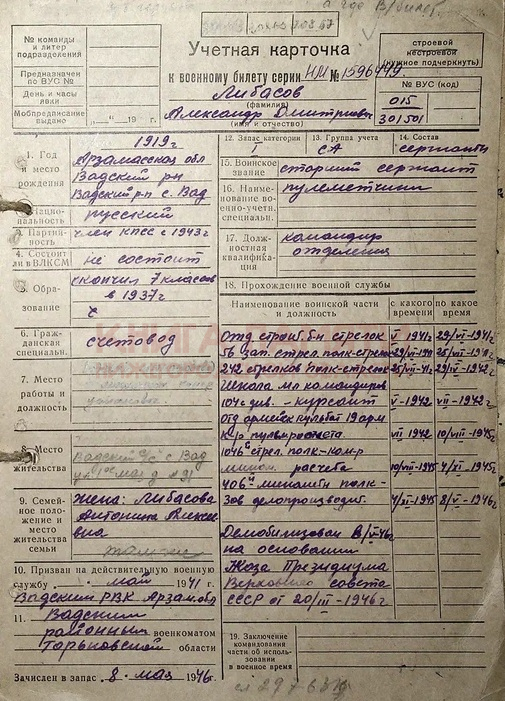 а где В/билет.
Учетная карточка
к военному билету серии НМ № 1596449
Либасов
(фамилия)
Александр Дмитриевич
(имя и отчество)
№ команды
и литер
подразделения
Предназначен
по ВУС №
День и часы
явки
Мобпредписание
выдано „ — “ 19 г.
строевой
нестроевой
(нужное подчеркнуть)
№ ВУС (код)
015
301501
1. Год
и место
рождения
1919 г
Арзамасская обл
Вадский р-н
Вадский р-н с. Вад
2. Национальность
русский
3. Партийность
член КПСС с 1943 г
4. Состоит
ли в ВЛКСМ
не состоит
5. Образование
окончил 7 классов
в 1937 г
6. Гражданская
специальн.
счетовод
7. Место
работы и
должность
8. Место
жительства
Вадский с. Вад
ул 1ое мая д № 91
9. Семейное
положение и
место
жительства
семьи
жена: Либасова
Антонина Алексеевна
10. Призван на действительную военную
службу май 1941 г.
Вадским РВК Арзам. обл
11. Вадским
районным военкоматом
Горьковской области
Зачислен в запас 8 мая 1946 г.
12. Запас категории
I
13. Группа учета
СА
14. Состав
сержанты
15. Воинское
звание
старший сержант
16. Наименование
военно-учетн.
специальн.
пулеметчики
17. Должностная
квалификация
командир
отделения
18. Прохождение военной службы
Наименование воинской части
и должность
с какого
времени
по какое
время
отд строит. б-н стрелок V 1941 г 29/VI-1941 г
56 зап. стрел полк-стрелок 29/VI-1941 25/VII-1941 г.
242 стрелков полк-стрелок 25/VII-41 г 29/IV-1942 г
Школа мл командиров
104 с див. - курсант V-1942 VII-1942 г
отд армейск пульбат 19 арм
к-р пульрасчета VII 1942 10/VIII-1945 г
1046 стрел. полк-ком-р
расчета 10/VIII-1945 4/XI-1945 г.
406й полк-
зав делопроизводит. 4/XI-1945 8/V-1946 г
Демобилизован 8/V-46 г
на основании
Указа Президиума
Верховного совета
СССР от 20/III-1946 г
19. Заключение
командования
части об использовании
в военное время